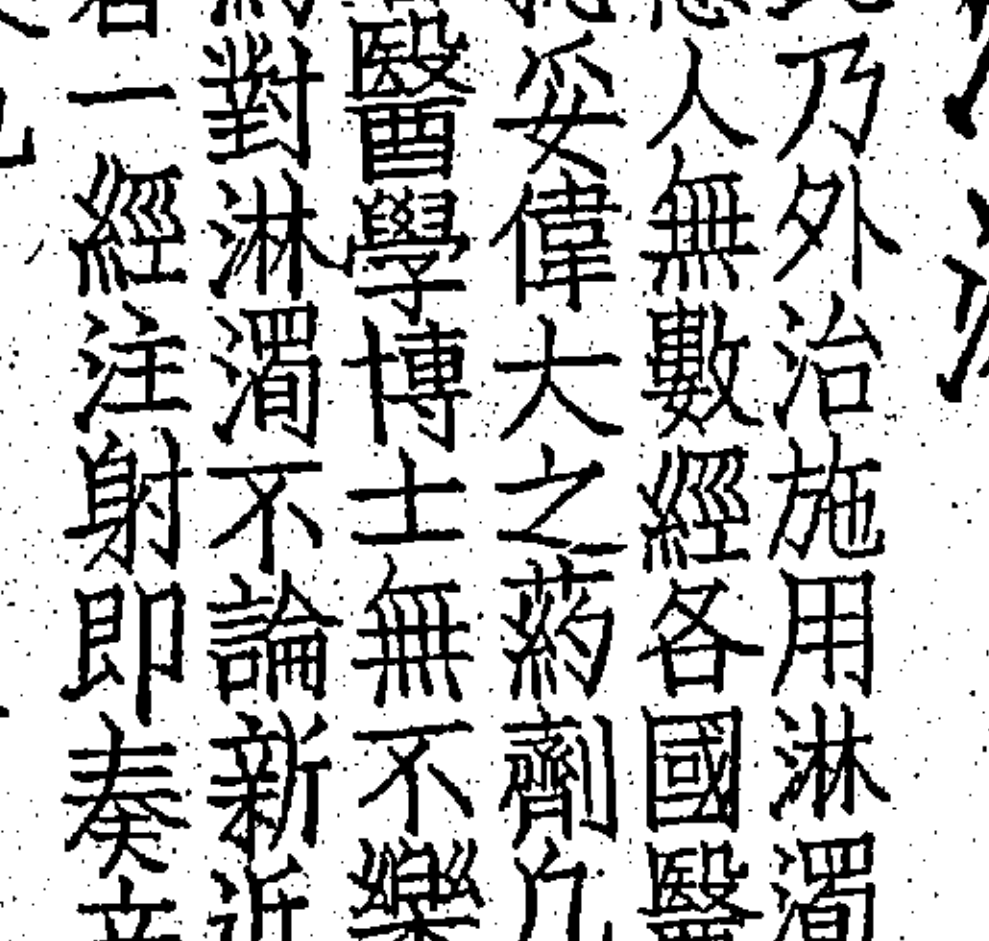 乃外治施用淋濁
人無數經各國醫
妥偉大之药劑凡
醫學博士無不樂
對淋濁不論新近
一經注射即奏奇